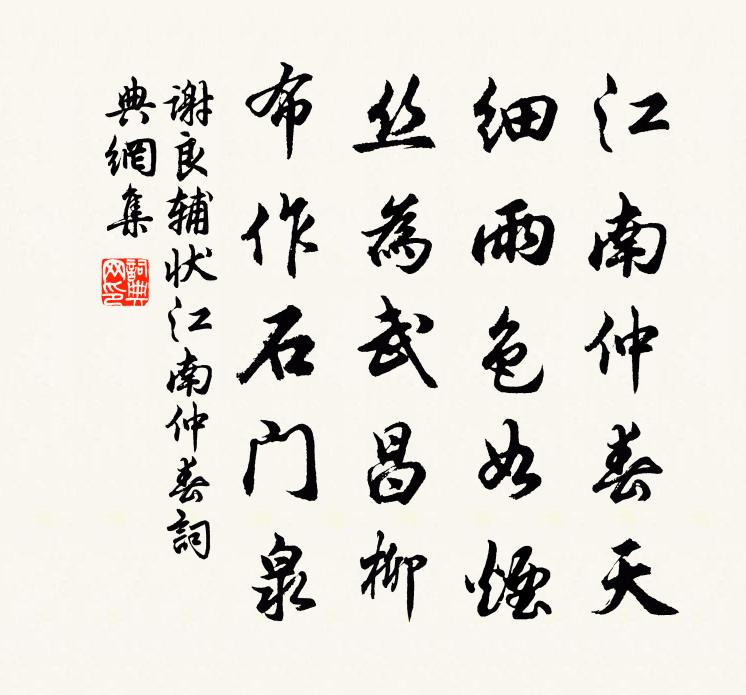 江南仲春天
细雨色如煙
丝為武昌柳
布作石门泉
谢良辅状江南仲春詞
典網集
詞典網印